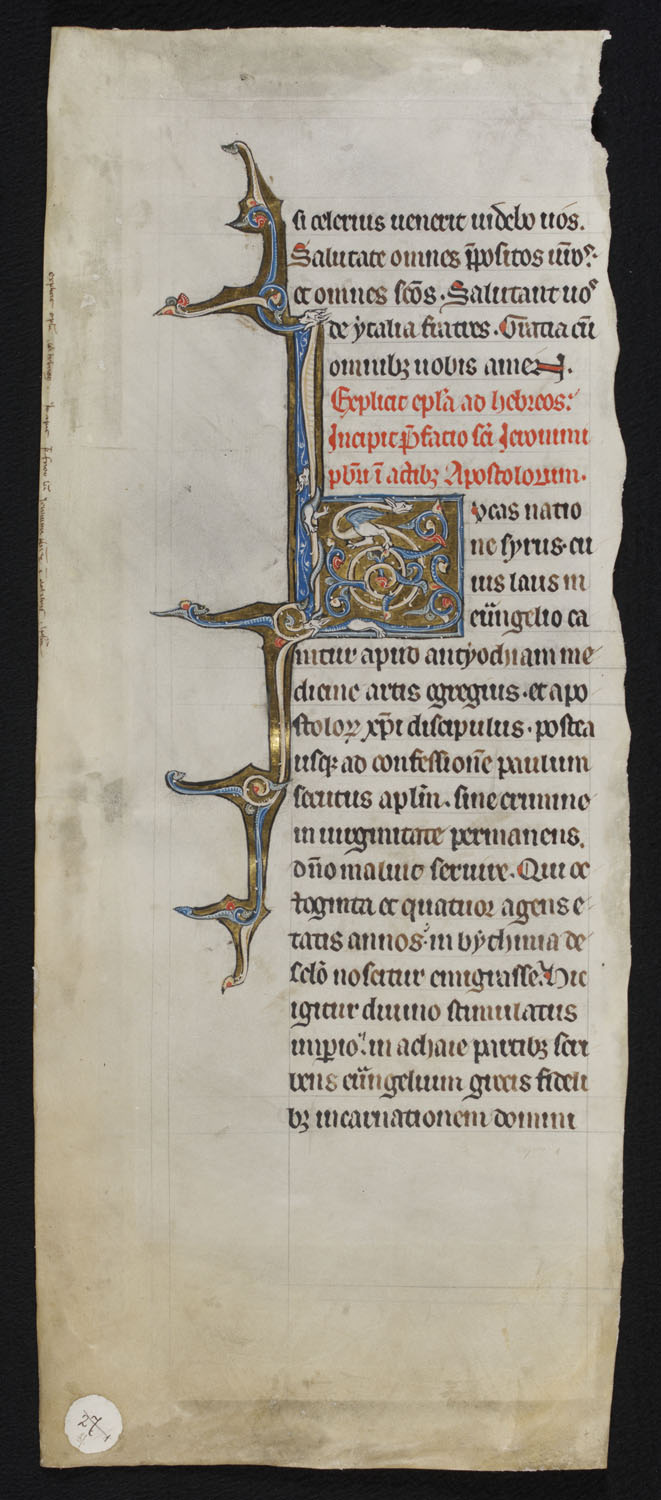 si celerius uenerit uidebo uos.
Salutate omnes p̄positos ur̄os.
et omnes scōs. Salutant uos
de ytalia fratres. Gratia cū
omnibꝫ uobis amen.
Explicit epl̄a ad hebreos:
Incipit p̄fatio sc̄i Jeronimi
pbr̄i ī actibꝫ Apostolorum.
Lucas natio
ne syrus. cu
ius laus in
eūngelio ca
nitur apud antyochiam me
dicine artis egregius. et apo
stoloꝝ xp̄i discipulus. postea
usqꝫ ad confessionē paulum
secutus apl̄m. sine crimine
in uirginitate permanens.
dn̄o maluit seruire. Qui oc
toginta et quatuor agens e
tatis annos. in bythinia de
scl̄o noscitur emigrasse. Hic
igitur diuino stimulatus
imp̄io. in achaie partibꝫ scri
bens eūngelium grecis fideli
bꝫ incarnationem domini
27